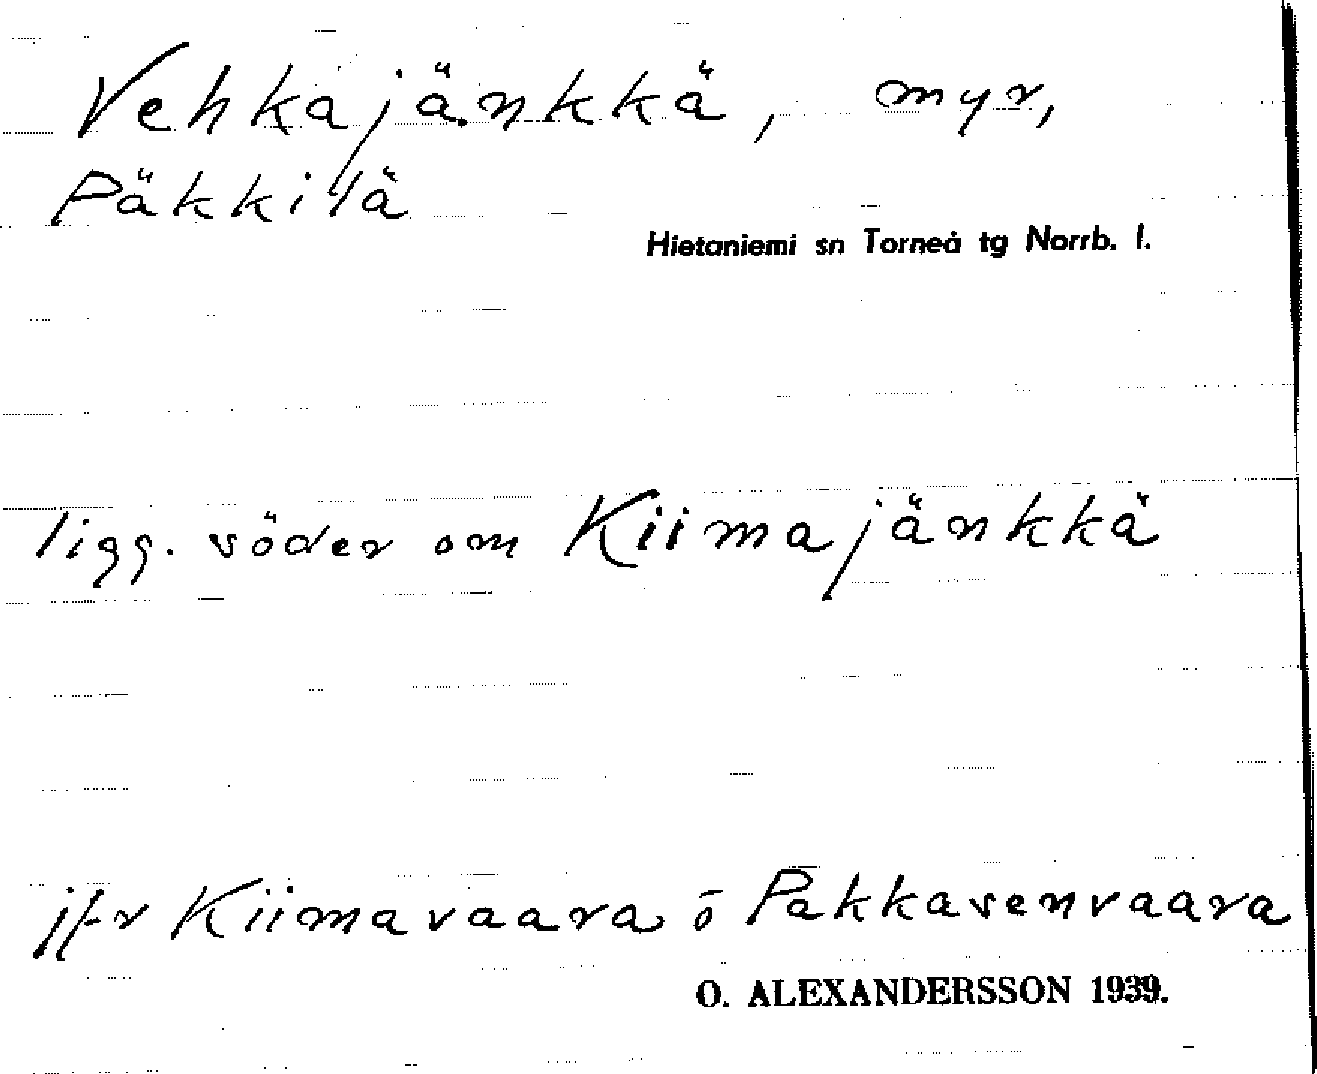 Vehkajänkkä, myr,
Päkkilä
Hietaniemi sn Torneå tg Norrb. l.
ligg. söder om Kiimajänkkä
jfr Kiimavaara o Pakkasenvaara
O. ALEXANDERSSON 1939.